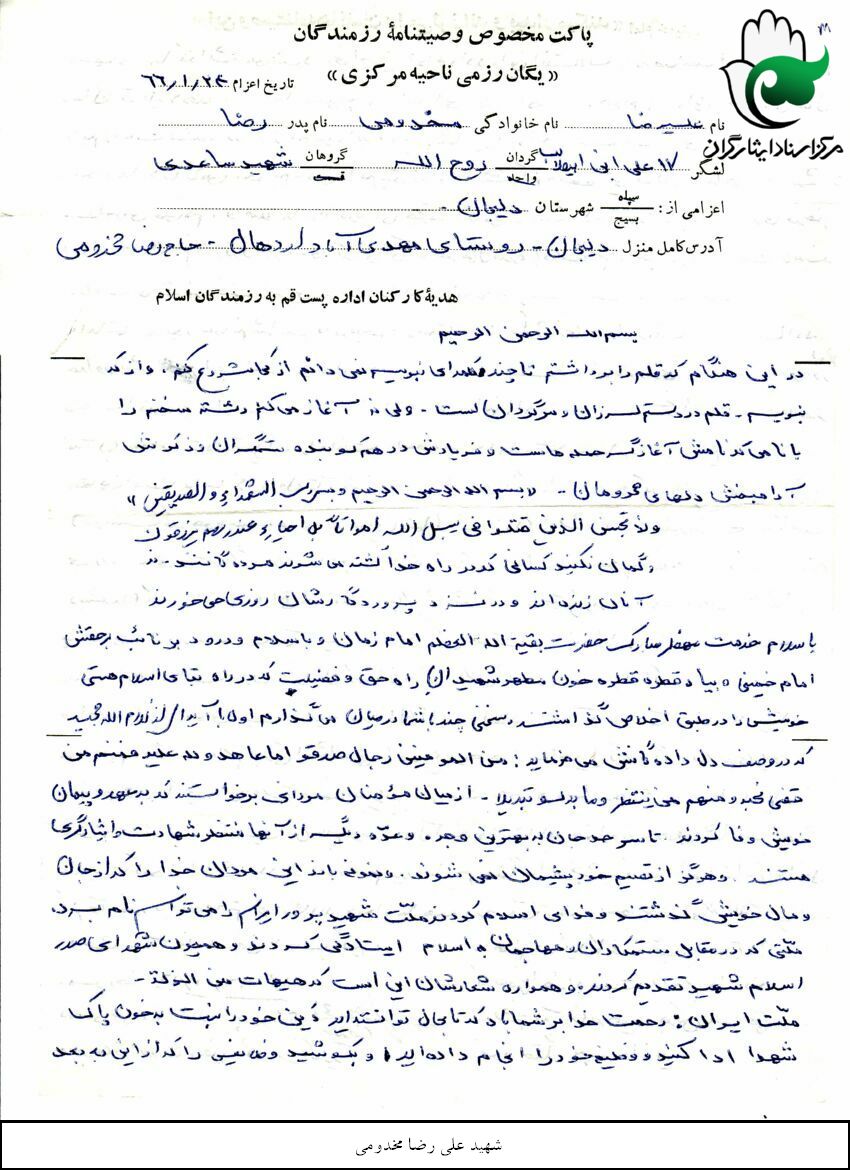 پاکت مخصوص وصیتنامهٔ رزمندگان
«یگان رزمی ناحیه مرکزی»
تاریخ اعزام ۶۶/۱/۲۳
مرکز اسناد ایثارگران
نام علیرضا نام خانوادگی مخدومی نام پدر رضا
لشگر ۱۷ علی ابن ابیطالب گردان واحد روح الله گروهان قسمت شهید ساعدی
اعزامی از: سپاه بسیج شهرستان دلیجان
آدرس کامل منزل دلیجان - روستای مهدی آباد اردهال - حاج رضا مخدومی
هدیهٔ کارکنان اداره پست قم به رزمندگان اسلام
بسم الله الرحمن الرحیم
در این هنگام که قلم را برداشتم تا چند کلمه‌ای بنویسم نمی دانم از کجا شروع کنم، و از که
بنویسم - قلم در دستم لرزان و سرگردان است - ولی نه آغاز می کنم رشته سخنم را
با نامی که نامش آغازگر حمله هاست و فریادش در هم کوبنده ستمگران و ذکرش
آرامبخش دلهای محرومان - «بسم الله الرحمن الرحیم و بسم رب الشهداء و الصدیقین»
ولا تحسبن الذین قتلوا فی سبیل الله امواتا بل احیاء عند ربهم یرزقون
و گمان نکنید کسانی که در راه خدا کشته می شوند مرده گانند - نه
آنان زنده اند و در نزد پروردگارشان روزی می خورند
با سلام خدمت محضر مبارک حضرت بقیة الله الاعظم امام زمان و با سلام و درود بر نائب برحقش
امام خمینی و بیاد قطره قطره خون مطهر شهیدان راه حق و فضیلت که در راه بقای اسلام هستی
خویش را در طبق اخلاص گذاشتند سخنی چند با شما در میان می گذارم اول با آیه‌ای از کلام الله مجید
که در وصف دل داده گانش می فرماید: من المومنین رجال صدقو اما عاهدوالله علیه فمنهم من
قضی نحبه و منهم من ینتظر وما بدلو تبدیلا - از میان مؤمنان مردانی برخواستند که به عهد و پیمان
خویش وفا کردند تا سر حد جان به بهترین وجه و عدّه دیگر از آنها منتظر شهادت و ایثارگری
هستند و هرگز از تصمیم خود پشیمان نمی شوند. و نمونه بارز این مردان خدا را که از جان
و مال خویش گذشتند و فدای اسلام کردند ملّت شهید پرور ایران را می توانم نام ببرد،
ملّتی که در مقابل ستمکاران و مهاجمان به اسلام ایستادگی کردند و همچون شهدای صدر
اسلام شهید تقدیم کردند و همواره شعارشان این است که هیهات من الذلة -
ملّت ایران: رحمت خدا بر شما باد که تا بحال توانسته اید دَین خود را نسبت به خون پاک
شهدا ادا کنید و وظیفه خود را انجام داده اید، و بکوشید وظایفی را که از این به بعد
شهید علی رضا مخدومی